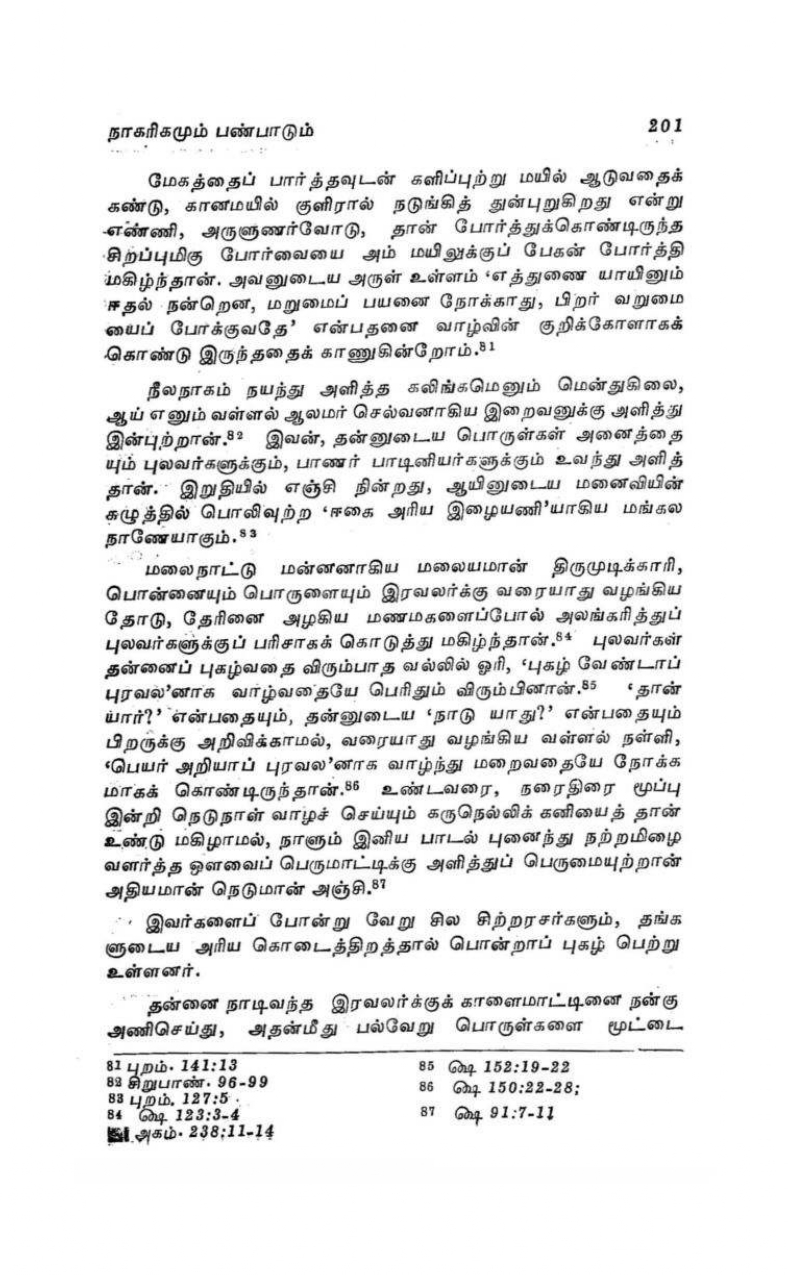 நாகரிகமும் பண்பாடும் 201
மேகத்தைப் பார்த்தவுடன் களிப்புற்று மயில் ஆடுவதைக்
கண்டு, கானமயில் குளிரால் நடுங்கித் துன்புறுகிறது என்று
எண்ணி, அருளுணர்வோடு, தான் போர்த்துக்கொண்டிருந்த
சிறப்புமிகு போர்வையை அம் மயிலுக்குப் பேகன் போர்த்தி
மகிழ்ந்தான். அவனுடைய அருள் உள்ளம் ‘எத்துணை யாயினும்
ஈதல் நன்றென, மறுமைப் பயனை நோக்காது, பிறர் வறுமை
யைப் போக்குவதே’ என்பதனை வாழ்வின் குறிக்கோளாகக்
கொண்டு இருந்ததைக் காணுகின்றோம்.81
நீலநாகம் நயந்து அளித்த கலிங்கமெனும் மென்துகிலை,
ஆய் எனும் வள்ளல் ஆலமர் செல்வனாகிய இறைவனுக்கு அளித்து
இன்புற்றான்.82 இவன், தன்னுடைய பொருள்கள் அனைத்தை
யும் புலவர்களுக்கும், பாணர் பாடினியர்களுக்கும் உவந்து அளித்
தான். இறுதியில் எஞ்சி நின்றது, ஆயினுடைய மனைவியின்
கழுத்தில் பொலிவுற்ற ‘ஈகை அரிய இழையணி’யாகிய மங்கல
நாணேயாகும்.83
மலைநாட்டு மன்னனாகிய மலையமான் திருமுடிக்காரி,
பொன்னையும் பொருளையும் இரவலர்க்கு வரையாது வழங்கிய
தோடு, தேரினை அழகிய மணமகளைப்போல் அலங்கரித்துப்
புலவர்களுக்குப் பரிசாகக் கொடுத்து மகிழ்ந்தான்.84 புலவர்கள்
தன்னைப் புகழ்வதை விரும்பாத வல்லில் ஓரி, ‘புகழ் வேண்டாப்
புரவல’னாக வாழ்வதையே பெரிதும் விரும்பினான்.85 ‘தான்
யார்?’ என்பதையும், தன்னுடைய ‘நாடு யாது?’ என்பதையும்
பிறருக்கு அறிவிக்காமல், வரையாது வழங்கிய வள்ளல் நள்ளி,
‘பெயர் அறியாப் புரவல’னாக வாழ்ந்து மறைவதையே நோக்க
மாகக் கொண்டிருந்தான்.86 உண்டவரை, நரைதிரை மூப்பு
இன்றி நெடுநாள் வாழச் செய்யும் கருநெல்லிக் கனியைத் தான்
உண்டு மகிழாமல், நாளும் இனிய பாடல் புனைந்து நற்றமிழை
வளர்த்த ஔவைப் பெருமாட்டிக்கு அளித்துப் பெருமையுற்றான்
அதியமான் நெடுமான் அஞ்சி.87
இவர்களைப் போன்று வேறு சில சிற்றரசர்களும், தங்க
ளுடைய அரிய கொடைத்திறத்தால் பொன்றாப் புகழ் பெற்று
உள்ளனர்.
தன்னை நாடிவந்த இரவலர்க்குக் காளைமாட்டினை நன்கு
அணிசெய்து, அதன்மீது பல்வேறு பொருள்களை மூட்டை
81 புறம். 141:13
82 சிறுபாண். 96-99
83 புறம். 127:5
84 ௸ 123:3-4
அகம். 238:11-14
85 ௸ 152:19-22
86 ௸ 150:22-28;
87 ௸ 91:7-11